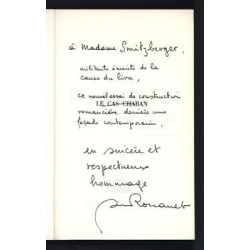 à Madame Smitzberger,
militante émérite de la
cause du livre,
ce nouvel essai de construction
LE CAS CHABAN
romancière derrière une
façade contemporaine,
en sincère et
respectueux
hommage
Rouanet